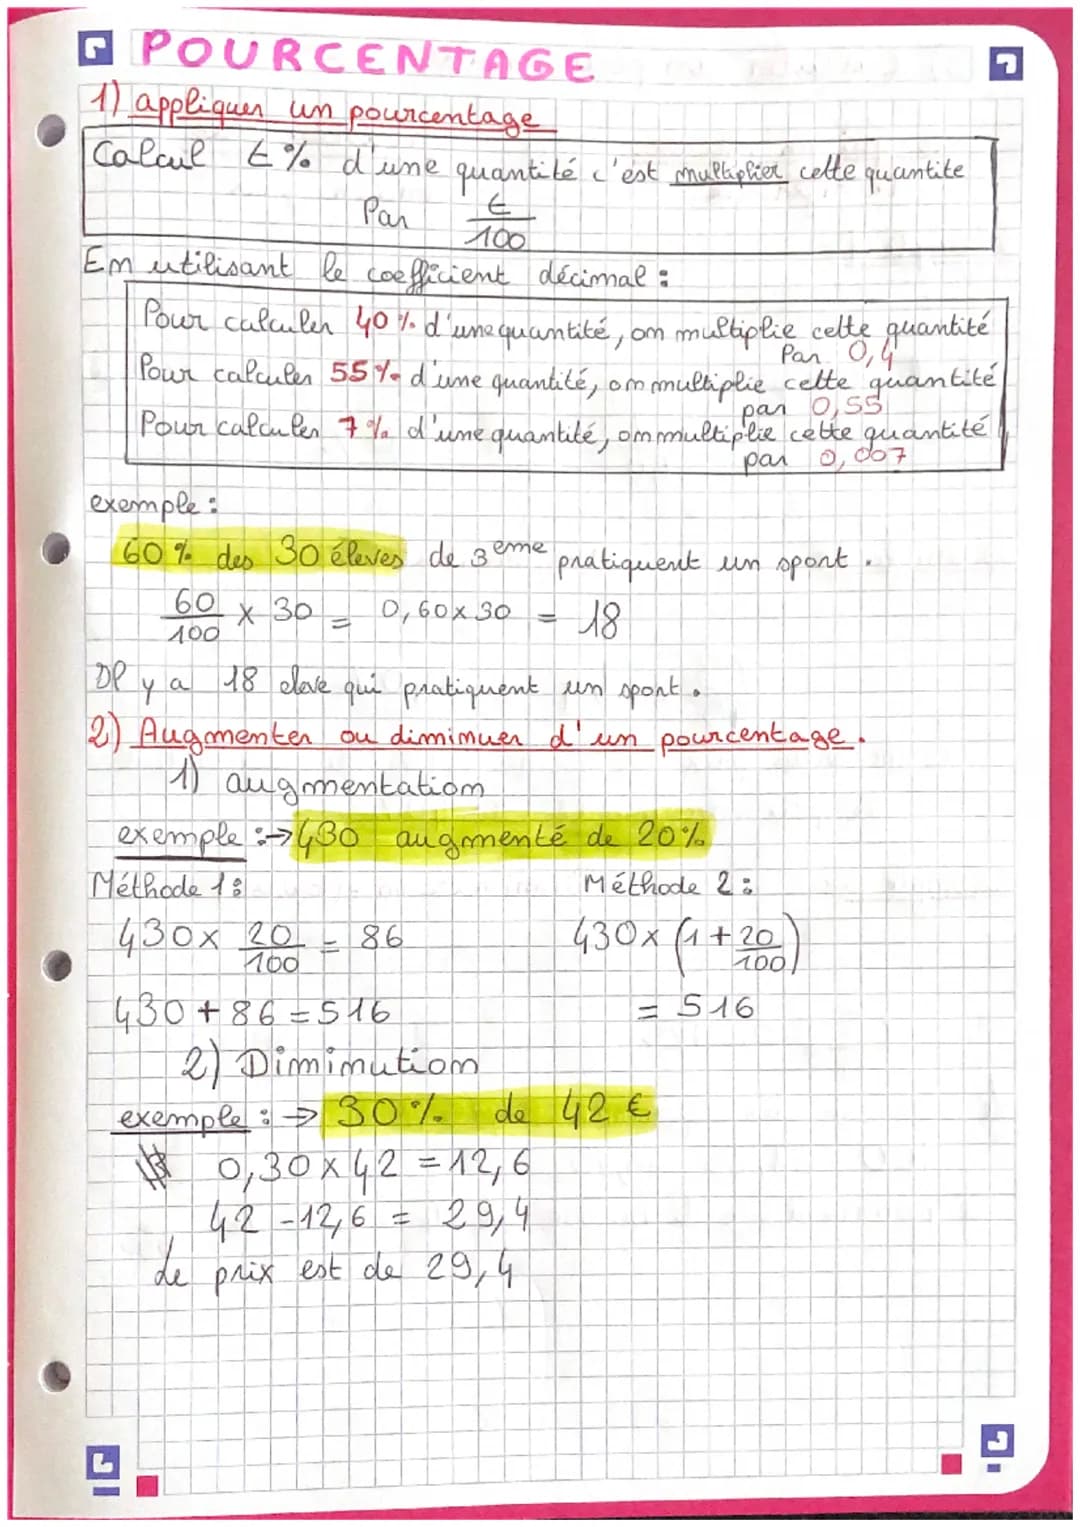 POURCENTAGE
1) appliquer un pourcentage
Calcul t% d'une quantité c'est multiplier cette quantite
Par t/100
En utilisant le coefficient décimal :
Pour calculer 40% d'une quantité, on multiplie cette quantité
Par 0,4
Pour calculer 55% d'une quantité, on multiplie cette quantité
par 0,55
Pour calculer 7% d'une quantité, on multiplie cette quantité
par 0,007
exemple :
60% des 30 éleves de 3eme pratiquent un sport.
60/100 x 30 = 0,60x30 = 18
y a 18 qui pratiquent un sport.
2) Augmenter ou diminuer d'un pourcentage.
1) augmentation
exemple :→430 augmenté de 20%
Méthode 1: Méthode 2:
430x 20/100 = 86 430x (1+20/100)
430+86=516 = 516
2) Diminution
exemple : → 30% de 42 €
0,30x42 =12,6
42 -12,6 = 29,4
Le prix est de 29,4